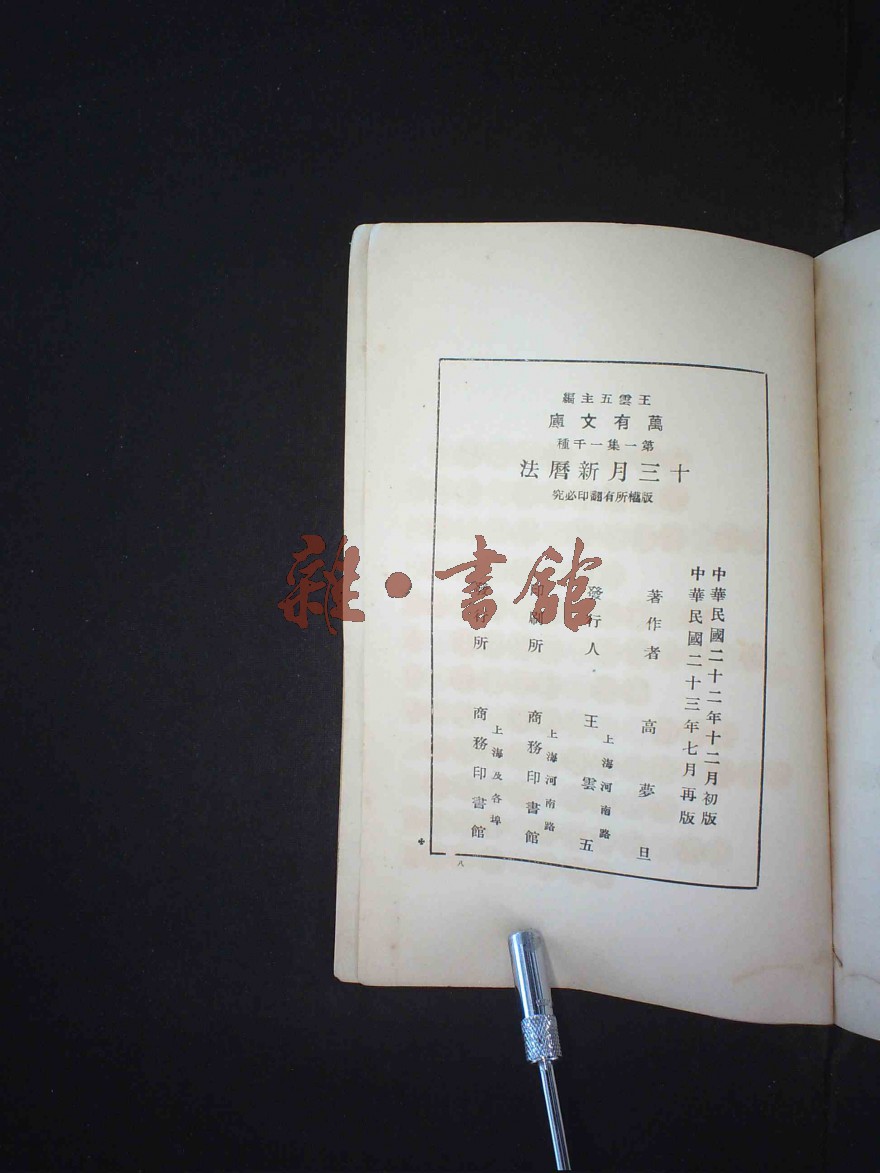 王雲五主編
萬有文庫
第一集一千種
十三月新曆法
版權所有翻印必究
中華民國二十二年十二月初版
中華民國二十三年七月再版
著作者 高夢旦
發行人 上海河南路 王雲五
印刷所 上海河南路 商務印書館
發行所 上海及各埠 商務印書館
八
雜·書館